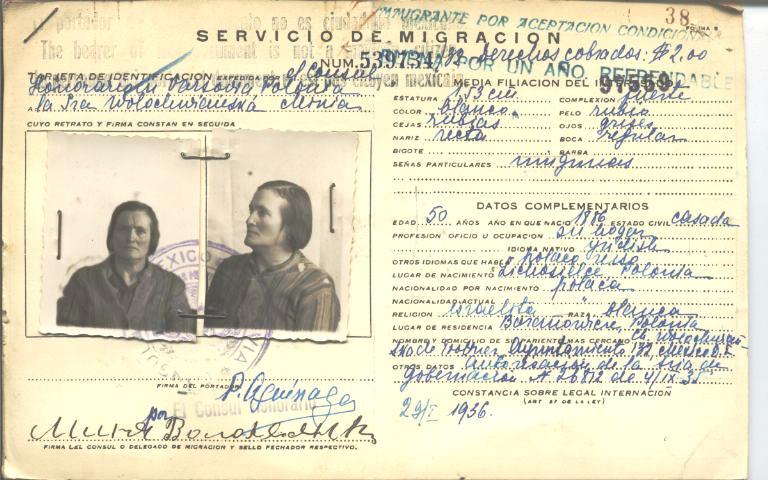 38
INMIGRANTE POR ACEPTACION CONDICIONAL
portador no es ciudadano mexicano
The bearer of document is not a
SERVICIO DE MIGRACION
NUM. 539734 Derechos cobrados: $2.00
POR UN AÑO. REFRENDABLE
97559
TARJETA DE IDENTIFICACION EXPEDIDA POR el Consul
Honorario en Varsovia Polonia
A la Sra
CUYO RETRATO Y FIRMA CONSTAN EN SEGUIDA
MEDIA FILIACION DEL
ESTATURA 1.53 cm COMPLEXION fuerte
COLOR blanco PELO rubio
CEJAS rubias OJOS grises
NARIZ recta BOCA regular
BIGOTE BARBA
SEÑAS PARTICULARES ningunas
DATOS COMPLEMENTARIOS
EDAD 50 AÑOS AÑO EN QUE NACIO 1886 ESTADO CIVIL casada
PROFESION OFICIO U OCUPACION su hogar
IDIOMA NATIVO yidish
OTROS IDIOMAS QUE HABLA polaco ruso
LUGAR DE NACIMIENTO Polonia
NACIONALIDAD POR NACIMIENTO polaca
NACIONALIDAD ACTUAL "
RELIGION israelita RAZA blanca
LUGAR DE RESIDENCIA Baranowicze, Polonia
NOMBRE Y DOMICILIO DE SU PARIENTE MAS CERCANO
de Trotner, Ayuntamiento 172
OTROS DATOS Autorización de la Sría de
Gobernación
CONSTANCIA SOBRE LEGAL INTERNACION
(ART 57 DE LA LEY)
29/I 1936.
FIRMA DEL PORTADOR
por
El Consul Honorario
FIRMA DEL CONSUL O DELEGADO DE MIGRACION Y SELLO FECHADOR RESPECTIVO.